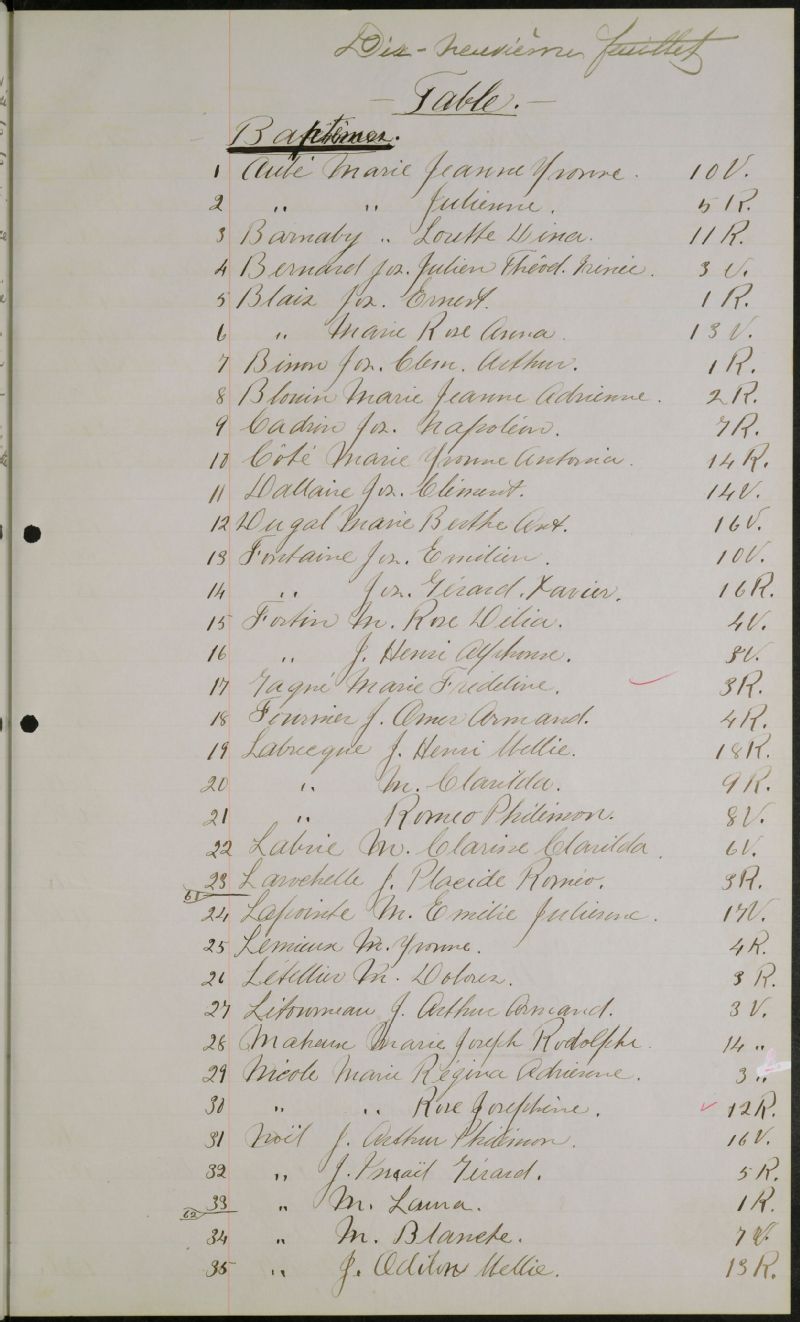 Dix-neuvième feuillet
— Table. —
Baptêmes.
1 Aubé Marie Jeanne Yvonne. 10 V.
2 " " Julienne. 5 R.
3 Barnaby " Lorette Dina. 11 R.
4 Bernard Jos. Julien Théod. Irénée. 3 V.
5 Blais Jos. Ernest. 1 R.
6 " Marie Rose Anna. 13 V.
7 Binon Jos. Clem. Arthur. 1 R.
8 Blouin Marie Jeanne Adrienne. 2 R.
9 Cadrin Jos. Napoléon. 7 R.
10 Côté Marie Yvonne Antonia. 14 R.
11 Dallaire Jos. Clément. 14 V.
12 Dugal Marie Berthe Ant. 16 V.
13 Fontaine Jos. Emilien. 10 V.
14 " Jos. Gérard. Xavier. 16 R.
15 Fortin M. Rose Délia. 4 V.
16 " J. Henri Alphonse. 3 V.
17 Gagné Marie Fredeline. 3 R.
18 Fournier J. Omer Armand. 4 R.
19 Labrecque J. Henri Mellie. 18 R.
20 " M. Clarilda. 9 R.
21 " Romeo Philimon. 8 V.
22 Labrie M. Clarisse Clarilda. 6 V.
23 Larochelle J. Placide Roméo. 3 R.
61
24 Lapointe M. Emilie Julienne. 17 V.
25 Lemieux M. Yvonne. 4 R.
26 Létellier M. Dolores. 3 R.
27 Létourneau J. Arthur Armand. 3 V.
28 Maheux Marie Joseph Rodolphe. 14 "
29 Nicole Marie Régina Adrienne. 3 "
30 " " Rose Josephine. 12 R.
31 Noël J. Arthur Philimon. 16 V.
32 " J. Gérard. 5 R.
33 " M. Laura. 1 R.
62
34 " M. Blanche. 7 V.
35 " J. Odilon Mellie. 13 R.